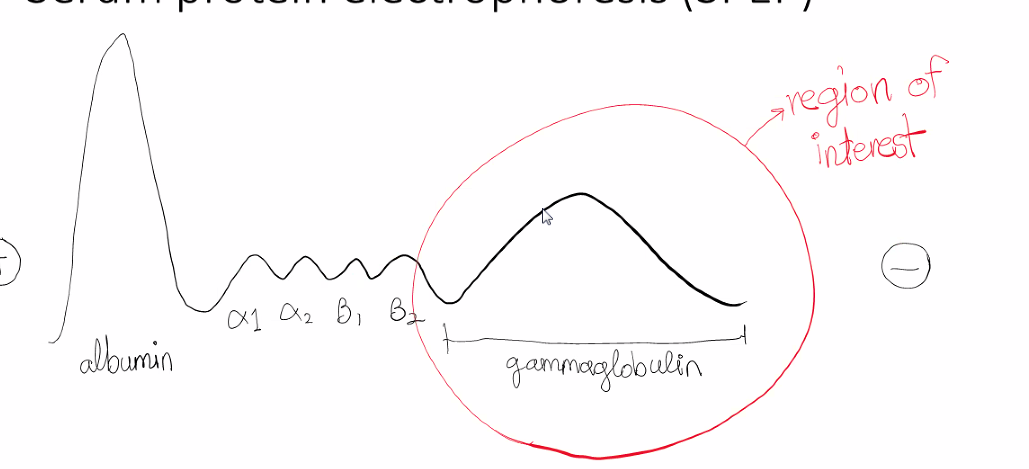 Serum protein electrophoresis (SPEP)
region of
interest
+
−
α1 α2 β1 β2
albumin
gammaglobulin